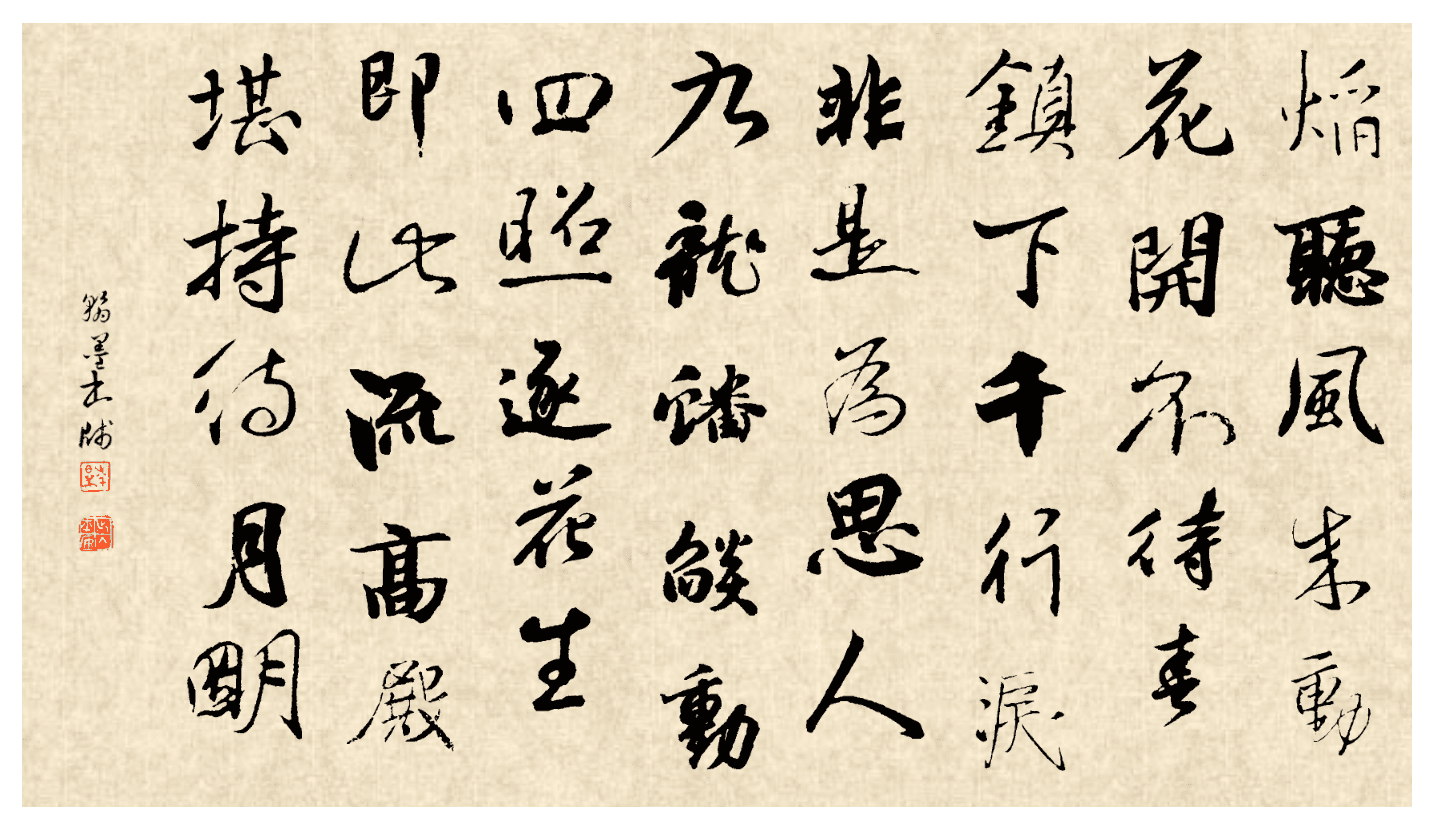 焔聽風来動
花開不待春
鎮下千行淚
非是為思人
九龍蟠燄動
四照逐花生
即此流高殿
堪持待月明
翰墨書